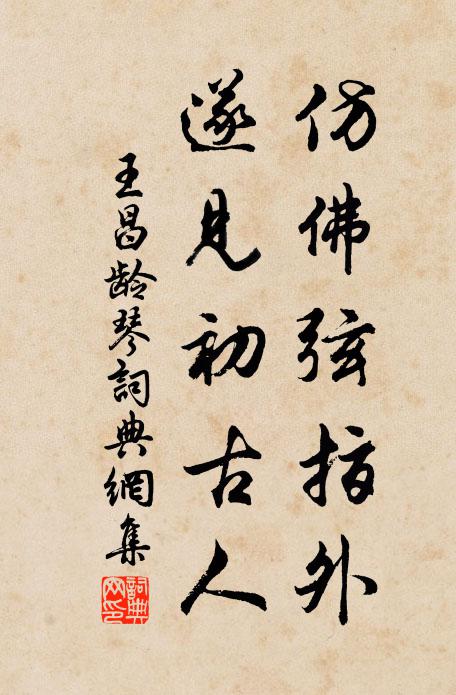 仿佛弦指外
遂見初古人
王昌齡琴詞典網集
詞典网印